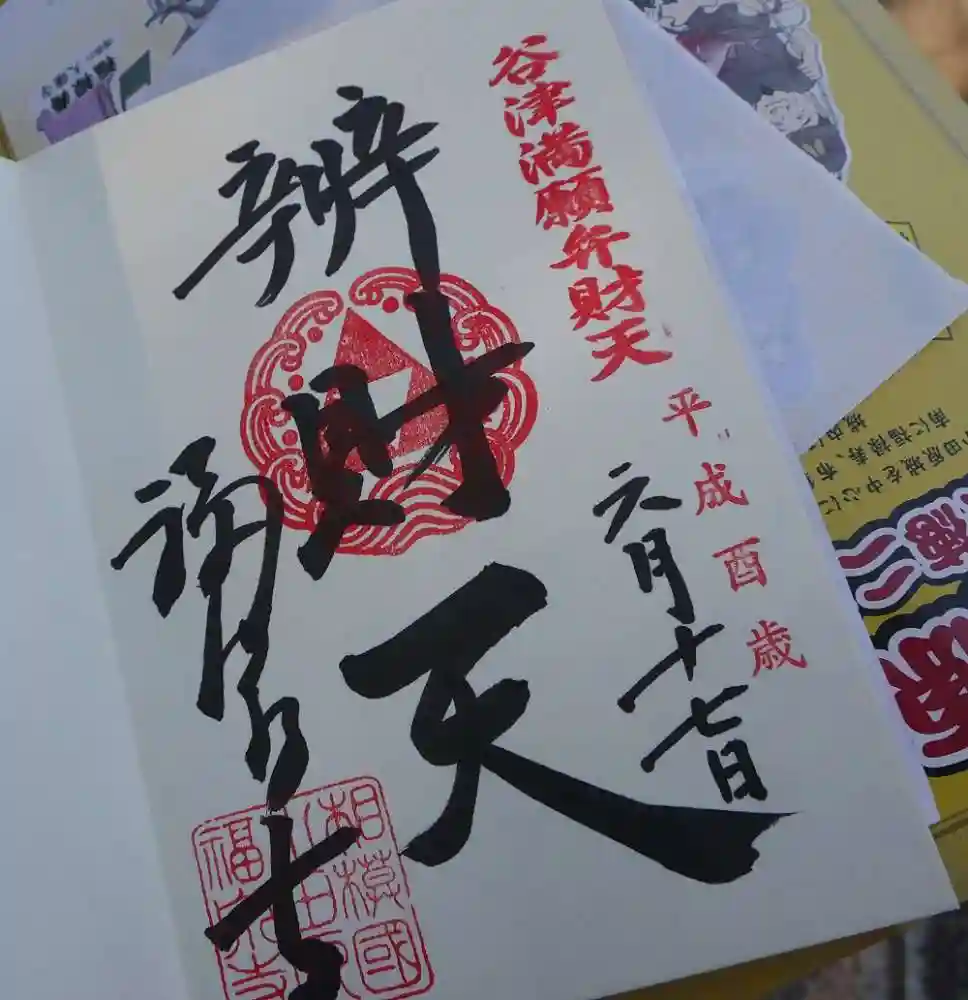 谷津満願弁財天
平成酉歳
六月十七日
辨財天
福泉寺
相模國
小田原
福泉寺
田原城を中心に
南に福禄寿、布